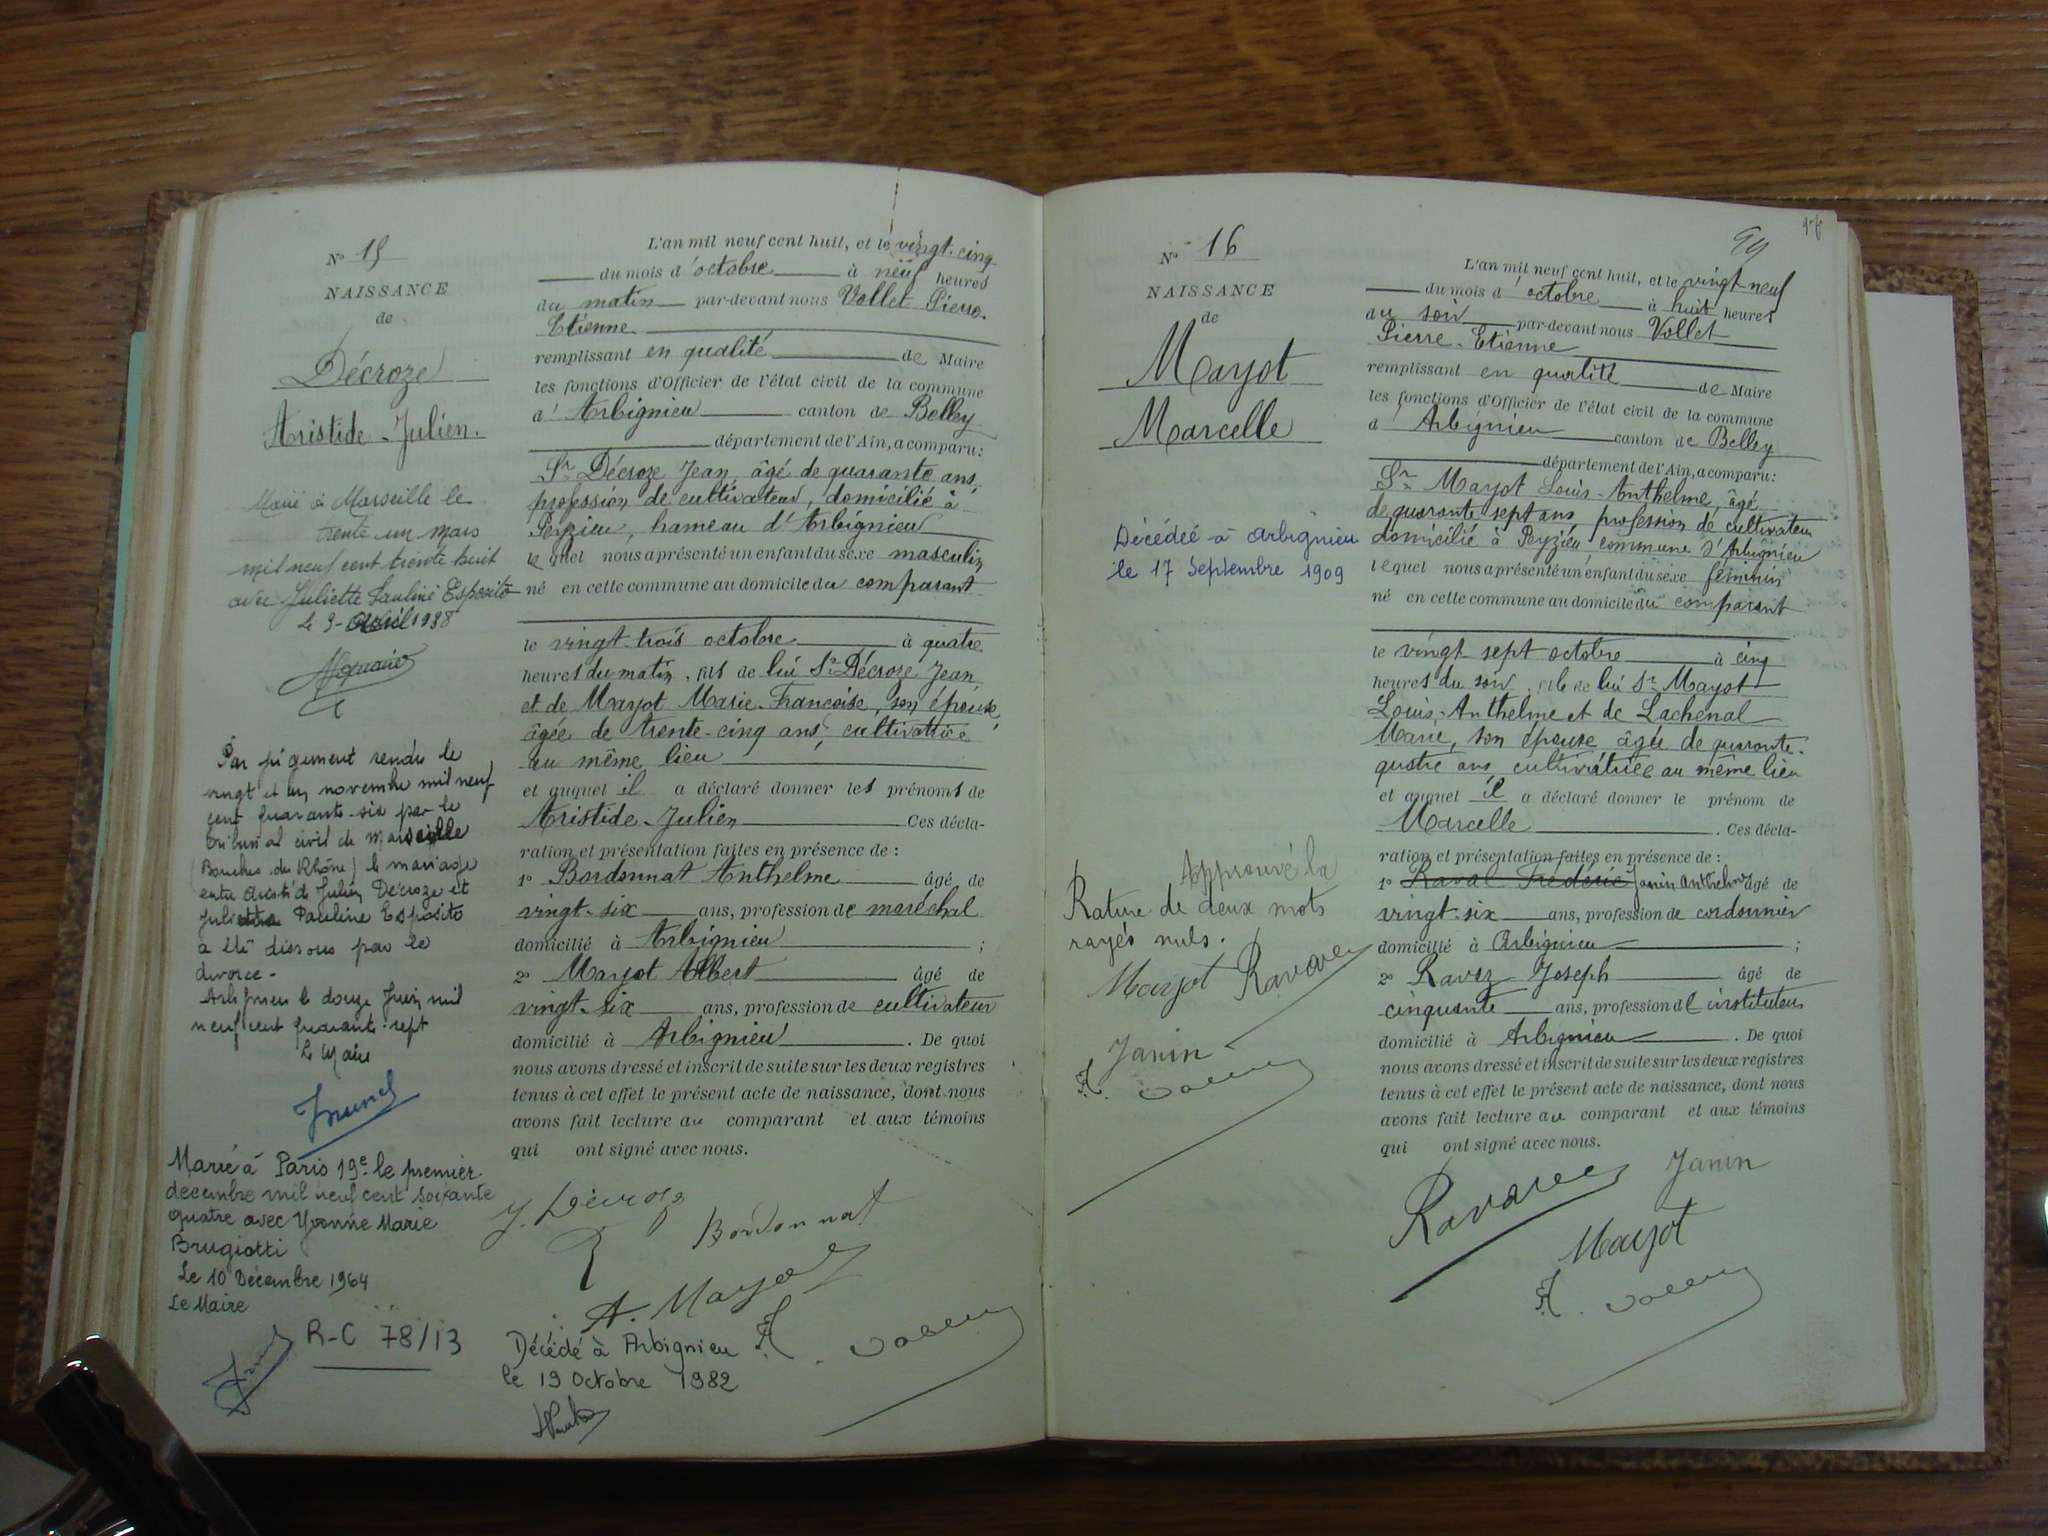 N° 15
NAISSANCE
de
Décroze
Aristide-Julien.
Marié à Marseille le
trente un mars
mil neuf cent trente huit
avec Juliette Pauline Esposito
le 9 Avril 1938
Par jugement rendu le
vingt et un novembre mil neuf
cent quarante-six par le
tribunal civil de Marseille
(Bouches du Rhône) le mariage
entre Aristide Julien Décroze et
Juliette Pauline Esposito
a été dissous par le
divorce.
Arbignieu le douze Juin mil
neuf cent quarante-sept
Le Maire
Marié à Paris 19e le premier
decembre mil neuf cent soixante
quatre avec Yvonne Marie
Brugiotti
Le 10 Décembre 1964
Le Maire
R-C 78/13
L'an mil neuf cent huit, et le vingt-cinq
du mois d'octobre à neuf heures
du matin par-devant nous Vollet Pierre-
Etienne
remplissant en qualité de Maire
les fonctions d'Officier de l'état civil de la commune
d'Arbignieu canton de Belley
département de l'Ain, a comparu:
Sr Décroze Jean, âgé de quarante ans,
profession de cultivateur, domicilié à
Peyzieu, hameau d'Arbignieu
lequel nous a présenté un enfant du sexe masculin
né en cette commune au domicile du comparant
le vingt-trois octobre à quatre
heures du matin, fils de lui Sr Décroze Jean
et de Mayot Marie-Françoise, son épouse,
âgée de trente-cinq ans, cultivatrice
au même lieu
et auquel il a déclaré donner les prénoms de
Aristide-Julien Ces décla-
ration et présentation faites en présence de :
1° Bordonnat Anthelme âgé de
vingt-six ans, profession de maréchal
domicilié à Arbignieu ;
2° Mayot Albert âgé de
vingt-six ans, profession de cultivateur
domicilié à Arbignieu . De quoi
nous avons dressé et inscrit de suite sur les deux registres
tenus à cet effet le présent acte de naissance, dont nous
avons fait lecture au comparant et aux témoins
qui ont signé avec nous.
J. Décroze
Bordonnat
A. Mayot
Décédé à Arbignieu
le 19 Octobre 1982
N° 16
NAISSANCE
de
Mayot
Marcelle
Décédée à Arbignieu
le 17 Septembre 1909
Approuvé la
Rature de deux mots
rayés nuls.
Mayot Ravarex
Janin
99
L'an mil neuf cent huit, et le vingt-neuf
du mois d'octobre à huit heures
du soir par-devant nous Vollet
Pierre-Etienne
remplissant en qualité de Maire
les fonctions d'Officier de l'état civil de la commune
d'Arbignieu canton de Belley
département de l'Ain, a comparu:
Sr Mayot Louis-Anthelme, âgé
de quarante sept ans, profession de cultivateur
domicilié à Peyzieu, commune d'Arbignieu
lequel nous a présenté un enfant du sexe féminin
né en cette commune au domicile du comparant
le vingt-sept octobre à cinq
heures du soir, fille de lui Sr Mayot
Louis-Anthelme et de Lachenal
Marie, son épouse âgée de quarante-
quatre ans, cultivatrice au même lieu
et auquel il a déclaré donner le prénom de
Marcelle . Ces décla-
ration et présentation faites en présence de :
1° Raval Frédéric Janin Anthelme âgé de
vingt-six ans, profession de cordonnier
domicilié à Arbignieu ;
2° Ravez Joseph âgé de
cinquante ans, profession de instituteur
domicilié à Arbignieu . De quoi
nous avons dressé et inscrit de suite sur les deux registres
tenus à cet effet le présent acte de naissance, dont nous
avons fait lecture au comparant et aux témoins
qui ont signé avec nous.
Janin
Mayot